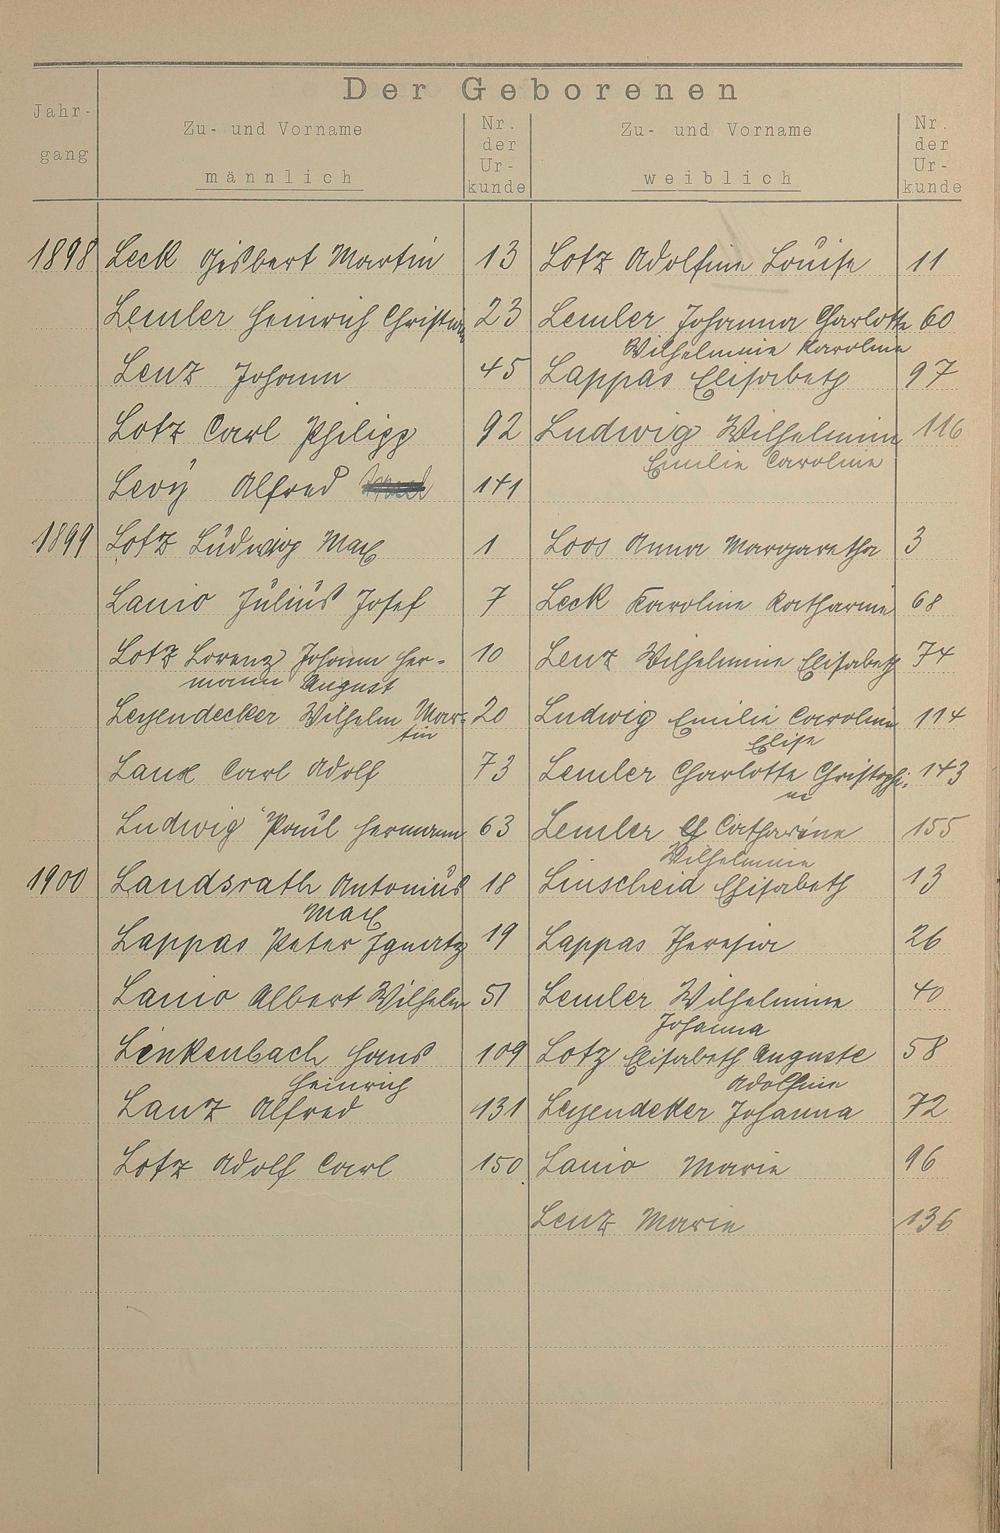 Der Geborenen
Jahr-
gang
Zu- und Vorname
männlich
Nr.
der
Ur-
kunde
Zu- und Vorname
weiblich
Nr.
der
Ur-
kunde
1898 Leck Gisbert Martin 13 Lotz Adolfine Louise 11
Lemler Heinrich Christian 23 Lemler Johanna Charlotte 60
Wilhelmine Karoline
Lenz Johann 45 Lappas Elisabeth 97
Lotz Carl Philipp 92 Ludwig Wilhelmine 116
Emilie Caroline
Levy Alfred 141
1899 Lotz Ludwig Max 1 Loos Anna Margaretha 3
Lanio Julius Josef 7 Leck Karoline Katharine 68
Lotz Lorenz Johann Her- 10 Lenz Wilhelmine Elisabeth 74
mann August
Leyendecker Wilhelm Mar- 20 Ludwig Emilie Caroline 114
tin Elise
Laux Carl Adolf 73 Lemler Charlotte Christophi- 143
ne
Ludwig Paul Hermann 63 Lemler Catharine 155
Wilhelmine
1900 Landsrath Antonius 18 Linscheid Elisabeth 13
Max
Lappas Peter Ignatz 19 Lappas Theresia 26
Lanio Albert Wilhelm 51 Lemler Wilhelmine 40
Johanna
Linkenbach Hans 109 Lotz Elisabeth Auguste 58
Heinrich Adolfine
Lanz Alfred 131 Leyendeker Johanna 72
Lotz Adolf Carl 150 Lanio Marie 96
Lenz Marie 136